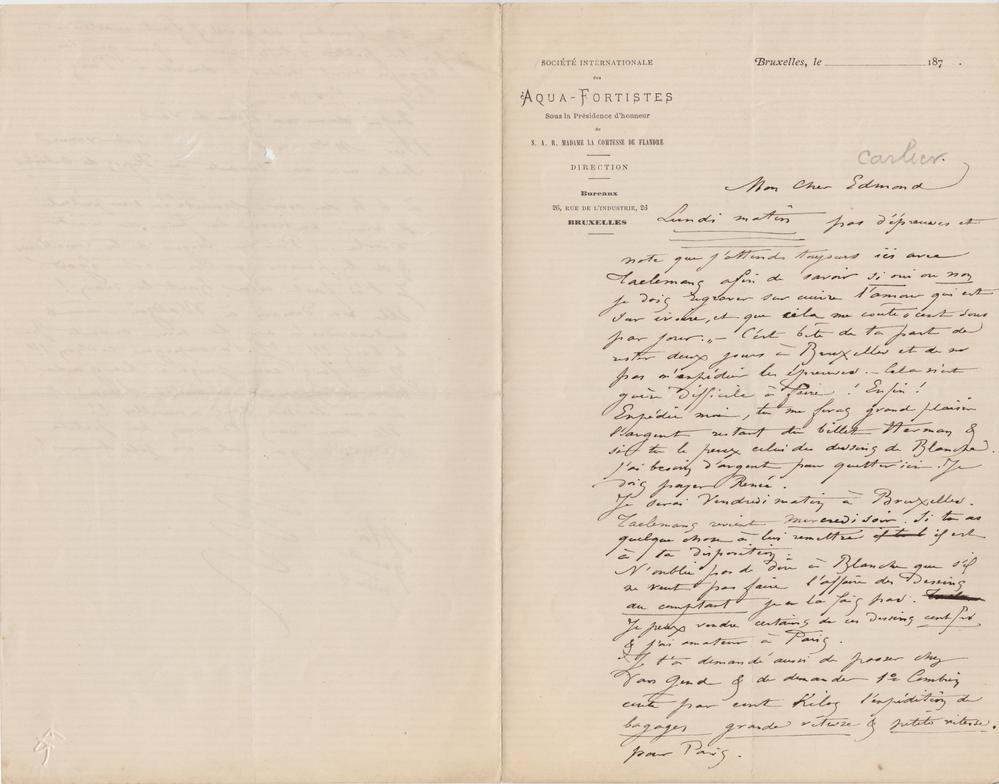 SOCIÉTÉ INTERNATIONALE
des
AQUA-FORTISTES
Sous la Présidence d'honneur
de
S. A. R. MADAME LA COMTESSE DE FLANDRE
DIRECTION
Bureaux
26, RUE DE L'INDUSTRIE, 26
BRUXELLES
Bruxelles, le 187 .
carlier.
Mon cher Edmond
Lundi matin pas d'épreuves et
note que j'attends toujours ici avec
Taelemans afin de savoir si oui ou non
je dois regraver sur cuivre l'amour qui est
sur ivoire, et que cela me coûte cent sous
par jour. — C'est bête de ta part de
rester deux jours à Bruxelles et de ne
pas m'expédier les épreuves. — Cela n'est
guère difficile à faire ! Enfin !
Expédie moi, tu me feras grand plaisir
l'argent restant du billet Herman &
si tu le peux celui des dessins de Blanche.
J'ai besoin d'argent pour quitter ici. Je
dois payer
Je serai Vendredi matin à Bruxelles.
Taelemans revient mercredi soir. Si tu as
quelque chose à lui remettre il est
à ta disposition
N'oublie pas de dire à Blanche que s'il
ne veut pas faire l'affaire des Dessins
au comptant je ne la fais pas.
Je peux vendre certains de ces dessins cent frs
& j'ai amateur à Paris.
Je t'ai demandé aussi de passer chez
Van Gend & de demander 1º Combien
coûte par cent Kilos l'expédition de
bagages grande vitesse & petite vitesse.
pour Paris.